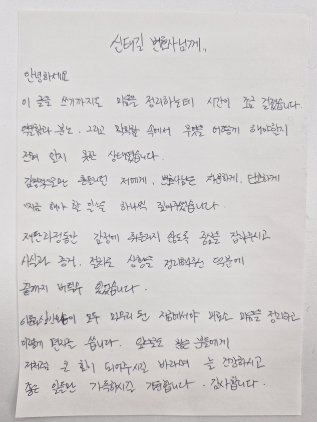 신태길 변호사님께..
안녕하세요
이 글을 쓰기까지도 마음을 정리하는데 시간이 조금 걸렸습니다.
억울함과 분노, 그리고 막막함 속에서 무엇을 어떻게 해야할지
전혀 알지 못한 상태였습니다.
흔들리던 저에게, 변호사님은 차분하게, 단단하게
지금 해야 할 일을 하나씩 짚어주셨습니다.
재판과정동안 감정에 휘둘리지 않도록 중심을 잡아주시고
사실과 증거, 절차로 상황을 정리해주신 덕분에
끝까지 버틸수 있었습니다.
모두 마무리 된 지금에서야 비로소 마음을 정리하고
이렇게 편지를 씁니다. 앞으로도 많은 분들에게
저처럼 큰 힘이 되어주시길 바라며 늘 건강하시고
좋은 일들만 가득하시길 기원합니다. 감사합니다.